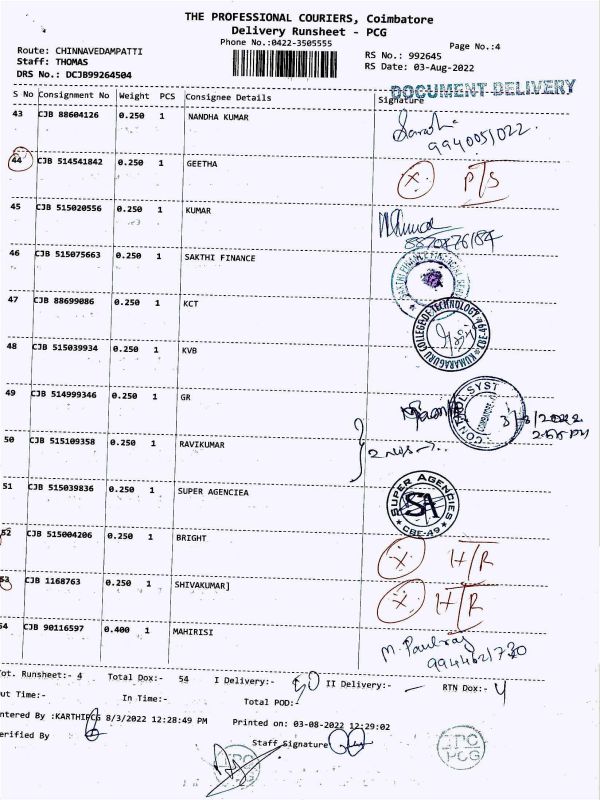 THE PROFESSIONAL COURIERS, Coimbatore
Delivery Runsheet - PCG
Phone No.:0422-3505555
Page No.:4
Route: CHINNAVEDAMPATTI
Staff: THOMAS
DRS No.: DCJB99264504
RS No.: 992645
RS Date: 03-Aug-2022
DOCUMENT DELIVERY
S No Consignment No Weight PCS Consignee Details Signature
43 CJB 88604126 0.250 1 NANDHA KUMAR
44 CJB 514541842 0.250 1 GEETHA X P/S
45 CJB 515020556 0.250 1 KUMAR
46 CJB 515075663 0.250 1 SAKTHI FINANCE
47 CJB 88699086 0.250 1 KCT
KUMARAGURU COLLEGE OF TECHNOLOGY
48 CJB 515039934 0.250 1 KVB
49 CJB 514999346 0.250 1 GR
50 CJB 515109358 0.250 1 RAVIKUMAR
51 CJB 515039836 0.250 1 SUPER AGENCIEA
SUPER AGENCIES
SA
CBE-49
52 CJB 515004206 0.250 1 BRIGHT X H/R
53 CJB 1168763 0.250 1 SHIVAKUMAR] X H/R
54 CJB 90116597 0.400 1 MAHIRISI
Tot. Runsheet:- 4 Total Dox:- 54 I Delivery:- 50 II Delivery:- — RTN Dox:- 4
Out Time:- In Time:- Total POD:-
Entered By :KARTHIPCG 8/3/2022 12:28:49 PM Printed on: 03-08-2022 12:29:02
Verified By Staff Signature
TPC
PCG